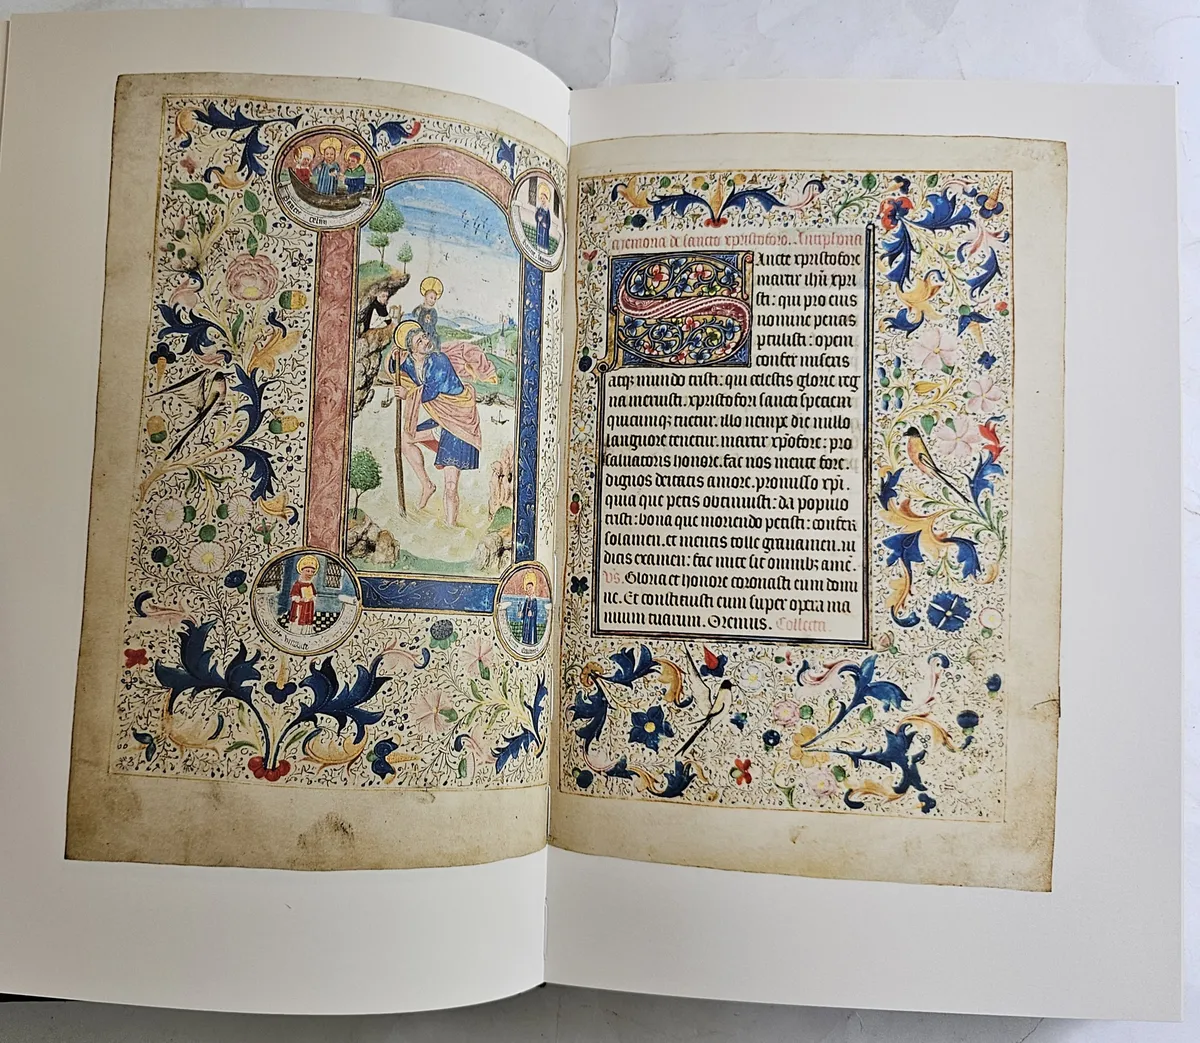 memoria de sancto xpristoforo. Antiphona
Sancte xpristofore
martir ihū xpri
sti: qui pro eius
nomine penas
ptulisti: opem
confer miseris
atq; mundo tristi: qui celestis glorie reg
na meruisti. xpristofori sancti speciem
quicumq; tuetur. illo nempe die nullo
languore tenetur. martir xpōfore: pro
saluatoris honore. fac nos mente fore.
dignos deitatis amore. promisso xpi.
quia que petis obtinuisti: da populo
tristi: bona que moriendo petisti: confer
solamen. et mentis tolle grauamen. iu
dicis examen: fac mite sit omnib; amē.
vs. Gloria et honore coronasti eum domi
ne. Et constituisti eum super opera ma
nuum tuarum. Oremus. Collecta.